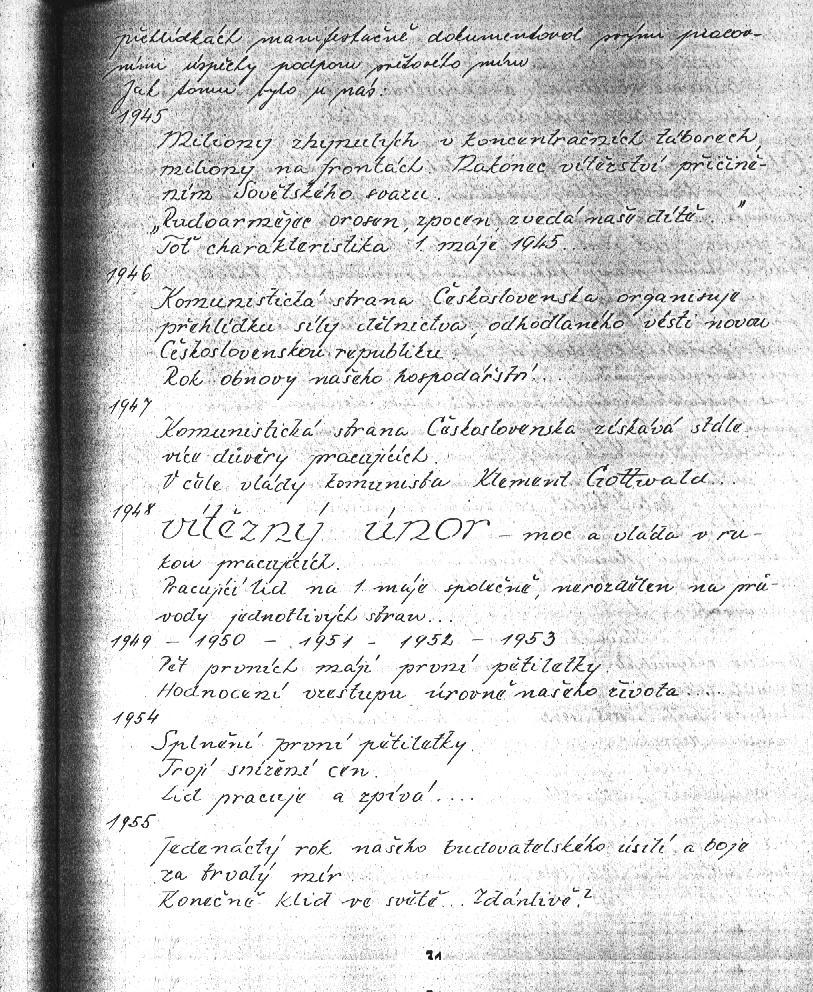 přehlídkách manifestačně dokumentoval svými pracov-
ními úspěchy podporu světového míru
Jak tomu bylo u nás:
1945
Miliony zhynulých v koncentračních táborech,
miliony na frontách. Nakonec vítězství přičině-
ním Sovětského svazu.
„Rudoarmějec orosen, zpocen, zvedá naše dítě..."
Toť charakteristika 1. máje 1945...
1946
Komunistická strana Československa organisuje
přehlídku síly dělnictva, odhodlaného vésti novou
Československou republiku
Rok obnovy našeho hospodářství...
1947
Komunistická strana Československa získává stále
více důvěry pracujících.
V čele vlády komunista Klement Gottwald...
1948
vítězný únor – moc a vláda v ru-
kou pracujících.
Pracující lid na 1. máje společně, nerozdělen na prů-
vody jednotlivých stran...
1949 – 1950 – 1951 – 1952 – 1953
Pět prvních májí první pětiletky
Hodnocení vzestupu úrovně našeho života ...
1954
Splnění první pětiletky.
Trojí snížení cen.
Lid pracuje a zpívá....
1955
Jedenáctý rok našeho budovatelského úsilí a boje
za trvalý mír
Konečně klid ve světě... Zdánlivě?